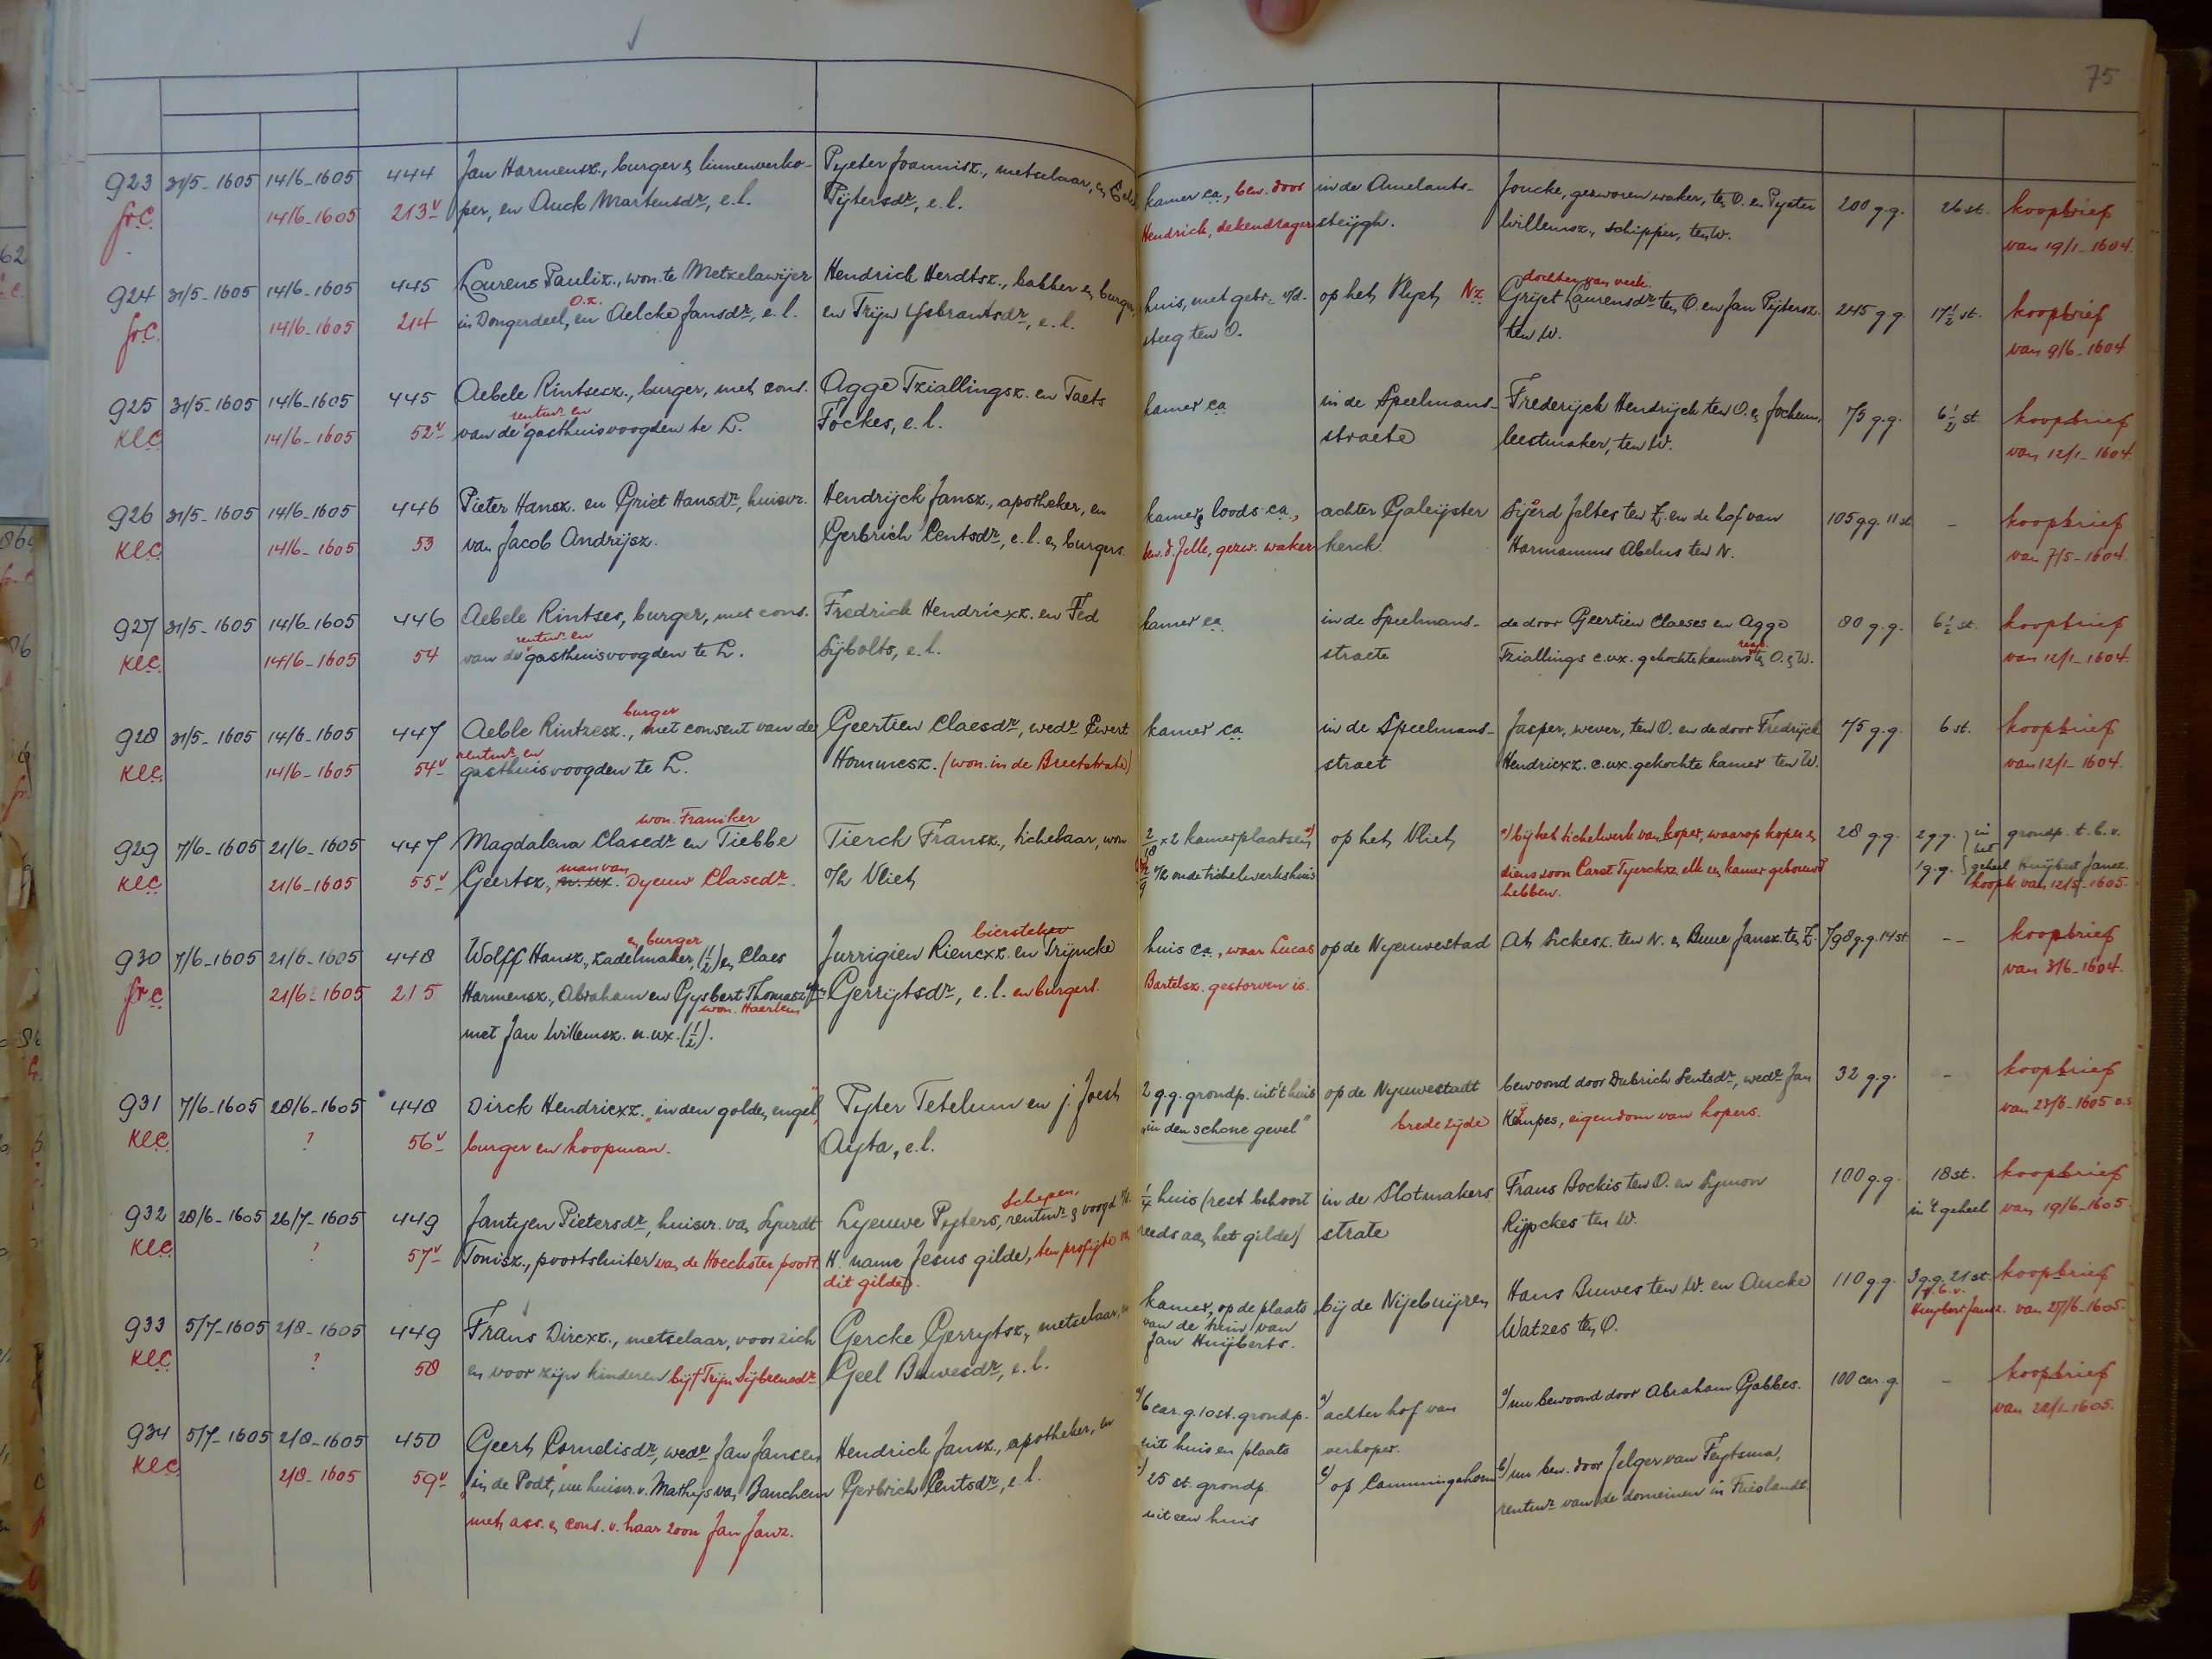 75
923 31/5-1605 14/6-1605 444 Jan Harmensz., burger & linnenverko- Pyeter Joannisz., metselaar, en kamer ca, bew. door in de Amelants- Joucke, gezworen waker, ten O. en Pyeter 200 g.g. 26 st. koopbrief
fr.C. 14/6-1605 213v per, en Auck Martensdr, e.l. Tijtersdr, e.l. Hendrick, dekendrager steijgh. Willemsz., schipper, ten W. van 19/1-1604
924 31/5-1605 14/6-1605 445 Lourens Pauliz., won. te Metzelawijer Hendrick Herdtsz., bakker en burger, huis, met gebr. v/d. op het Vlyet Nz dochter van verk. Grijet Laurensdr ten O. en Jan Pijtersz. 245 g.g. 17½ st. koopbrief
fr.C. 14/6-1605 214 in Dongerdeel, o.z. en Aelcke Jansdr, e.l. en Trijn Ysbrantsdr, e.l. steeg ten O. ten W. van 9/6-1604
925 31/5-1605 14/6-1605 445 Aebele Rintsesz., burger, met cons. Agge Tziallingsz. en Taets kamer ca in de Speelmans- Frederijck Hendrijck ten O. en Jochum, 75 g.g. 6½ st. koopbrief
KLC 14/6-1605 52v van de rentmr en gasthuisvoogden te L. Fockes, e.l. straete leestmaker, ten W. van 12/1-1604
926 31/5-1605 14/6-1605 446 Pieter Hansz. en Griet Hansdr, huisvr. Hendrijck Jansz., apotheker, en kamer & loods ca, achter Galeijster Sijerd Jeltes ten Z. en de hof van 105 g.g. 11 st - koopbrief
KLC 14/6-1605 53 van Jacob Andrijsz. Gerbrich Lentsdr, e.l. en burgers. bew. d. Jelle, gezw. waker kerck. Harmannus Abelus ten N. van 7/5-1604
927 31/5-1605 14/6-1605 446 Aebele Rintses, burger, met cons. Fredrick Hendricxz. en Fed kamer ca in de Speelmans- de door Geertien Claeses en Agge 80 g.g. 6½ st. koopbrief
KLC 14/6-1605 54 van de rentmr en gasthuisvoogden te L. Sijbolts, e.l. straete Tziallings c.ux. gekochte kamers resp. ten O. & W. van 12/1-1604
928 31/5-1605 14/6-1605 447 Aeble Rintzesz., burger met consent van de Geertien Claesdr, wedr Ewert kamer ca in de Speelmans- Jasper, wever, ten O. en de door Fredrijck 75 g.g. 6 st. koopbrief
KLC 14/6-1605 54v rentmr en gasthuisvoogden te L. Hommesz. (won. in de Breetstrate) straet Hendricxz. c.ux. gekochte kamer ten W. van 12/1-1604.
929 7/6-1605 21/6-1605 447 Magdalena Clasedr won. Franiker en Tiebbe Tierck Fransz., tichelaar, won. 2/18 x 2 kamerplaatsen a) op het Vliet a) bij het tichelwerk van koper, waarop koper en 28 g.g. 2 g.g. in het grondp. t.b.v.
KLC 21/6-1605 55v Geertsz., man van Dyeuw Clasedr. o/h Vliet o/h oude tichelwerkshuis diens zoon Carst Tyerckxz elk een kamer gebouwd 1 g.g. geheel Huijbert Jansz.
hebben. koopbr. van 12/5-1605.
930 7/6-1605 21/6-1605 448 Wolff Hansz., zadelmaker, en burger (½) en Claes Jurrigien Riencxz. biersteker en Trijncke huis ca, waar Lucas op de Nyeuwestad At Sickesz. ten N. & Buue Jansz. ten Z. 798 g.g. 14 st -- koopbrief
fr.C. 21/6-1605 215 Harmensz., Abraham en Gysbert Thomasz. won. Haerlem Gerrijtsdr, e.l. en burgers. Bartelsz. gestorven is. van 3/6-1604.
met Jan Willemsz. n. ux. (½).
931 7/6-1605 28/6-1605 448 Dirck Hendricxz. "in den golden engel," Pyter Tetelum en j. Joest 2 g.g. grondp. uit 't huis op de Nyeuwestadt bewoond door Dubrich Sentsdr, wedr Jan 32 g.g. - koopbrief
KLC ? 56v burger en koopman. Ayta, e.l. "in den schone gevel" brede zijde Kempes, eigendom van kopers. van 23/6-1605 o.s
932 28/6-1605 26/7-1605 449 Jantyen Pietersdr, huisvr. van Sjurdt Lyeuwe Pyters, schepen, rentmr & voogd v/d. ¼ huis (rest behoort in de Slotmakers Frans Bockis ten O. en Symon 100 g.g. 18 st. koopbrief
KLC ? 57v Tonisz., poortsluiter van de Hoeckster poort. H. name Jesus gilde, ten profijte van reeds aan het gilde) strate Rijpckes ten W. in 't geheel van 19/6-1605.
dit gilde.
933 5/7-1605 2/8-1605 449 Frans Dircxz., metselaar, voor zich Gercke Gerrytsz., metselaar, en kamer, op de plaats bij de Nijebuijren Hans Buwes ten W. en Aucke 110 g.g. 3 g.g. 21 st. koopbrief
KLC ? 58 en voor zijn kinderen bij † Trijn Sijbrensdr Geel Buwesdr, e.l. van de tuin van Watzes ten O. t.b.v. Huijbert Jansz. van 27/6-1605.
Jan Huijberts.
934 5/7-1605 2/8-1605 450 Geert Cornelisdr, wedr Jan Jansen Hendrick Jansz., apotheker, en a) 6 car. g. 10 st. grondp. a) achter hof van a) nu bewoond door Abraham Gabbes. 100 car. g. - koopbrief
KLC 2/8-1605 59v in de Podt, nu huisvr. v. Mathys van Banchem Gerbrich Lentsdr, e.l. uit huis en plaats verkoper. van 22/1-1605.
met ass. & cons. v. haar zoon Jan Janz. 25 st. grondp. b) op Cammingahorn b) nu bew. door Jelger van Feytsma,
uit een huis rentmr van de domeinen in Frieslandt.